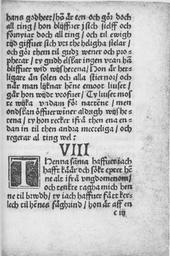 hans godheet/ hō är een och gör doch
all ting/ hon bliffuer i sich sielff och
förnyiar doch all ting/ och til ewigh
tijd giffuer sich vthi the helgha sielar/
och gör them til gudz wener och pro-
pheter/ ty gudh elskar ingen vtan hā
bliffuer widh wijsheena/ Hon är her-
ligare än solen och alla stiernor/ och
når man liknar hēne emoot liuset/
går hon wijdt vtoffuer/ Ty liuset mo-
ste wijka vndan för natten/ men
ondskan öffuerwiner aldrigh wijshe-
tena/ ty hon recker ifrå then ena en-
dan in til then andra mecteliga/ och
regerar al ting wel/
VIII
Henna haffuer iach
hafft käär och sökt epter hē-
ne alt ifrå vngdomenom/
och tenkte tagha mich hen-
ne til brudh/ ty iach haffuer fått ker-
leeck til hēnes
c iij